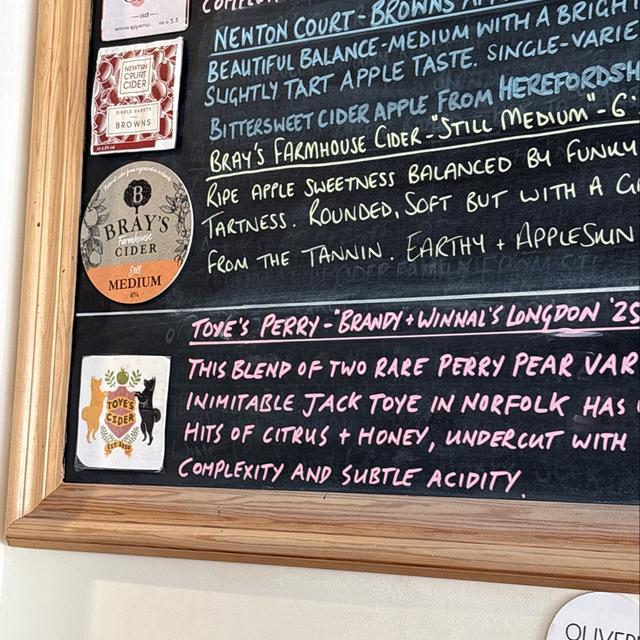 NEWTON COURT - BROWNS
BEAUTIFUL BALANCE - MEDIUM WITH A BRIGHT
SLIGHTLY TART APPLE TASTE. SINGLE-VARIE
BITTERSWEET CIDER APPLE FROM HEREFORDSH
NEWTON
COURT
CIDER
SINGLE VARIETY
BROWNS
BRAY'S FARMHOUSE CIDER - "STILL MEDIUM" - 6
RIPE APPLE SWEETNESS BALANCED BY FUNKY
TARTNESS. ROUNDED, SOFT BUT WITH A G
FROM THE TANNIN. EARTHY + APPLESKIN
B
BRAY'S
Farmhouse
CIDER
Still
MEDIUM
6%
TOYE'S PERRY - "BRANDY + WINNAL'S LONGDON '25
THIS BLEND OF TWO RARE PERRY PEAR VAR
INIMITABLE JACK TOYE IN NORFOLK HAS
HITS OF CITRUS + HONEY, UNDERCUT WITH
COMPLEXITY AND SUBTLE ACIDITY.
TOYE'S
CIDER
EST. 2020
OLIVER